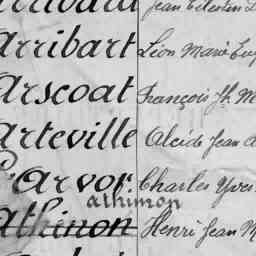 Jean Célestin
Arribart Léon Marie
Arscoat François Jh. M
Arteville Alcide Jean A
Carvor. Charles Yves
athimon
Athinon Henri Jean M